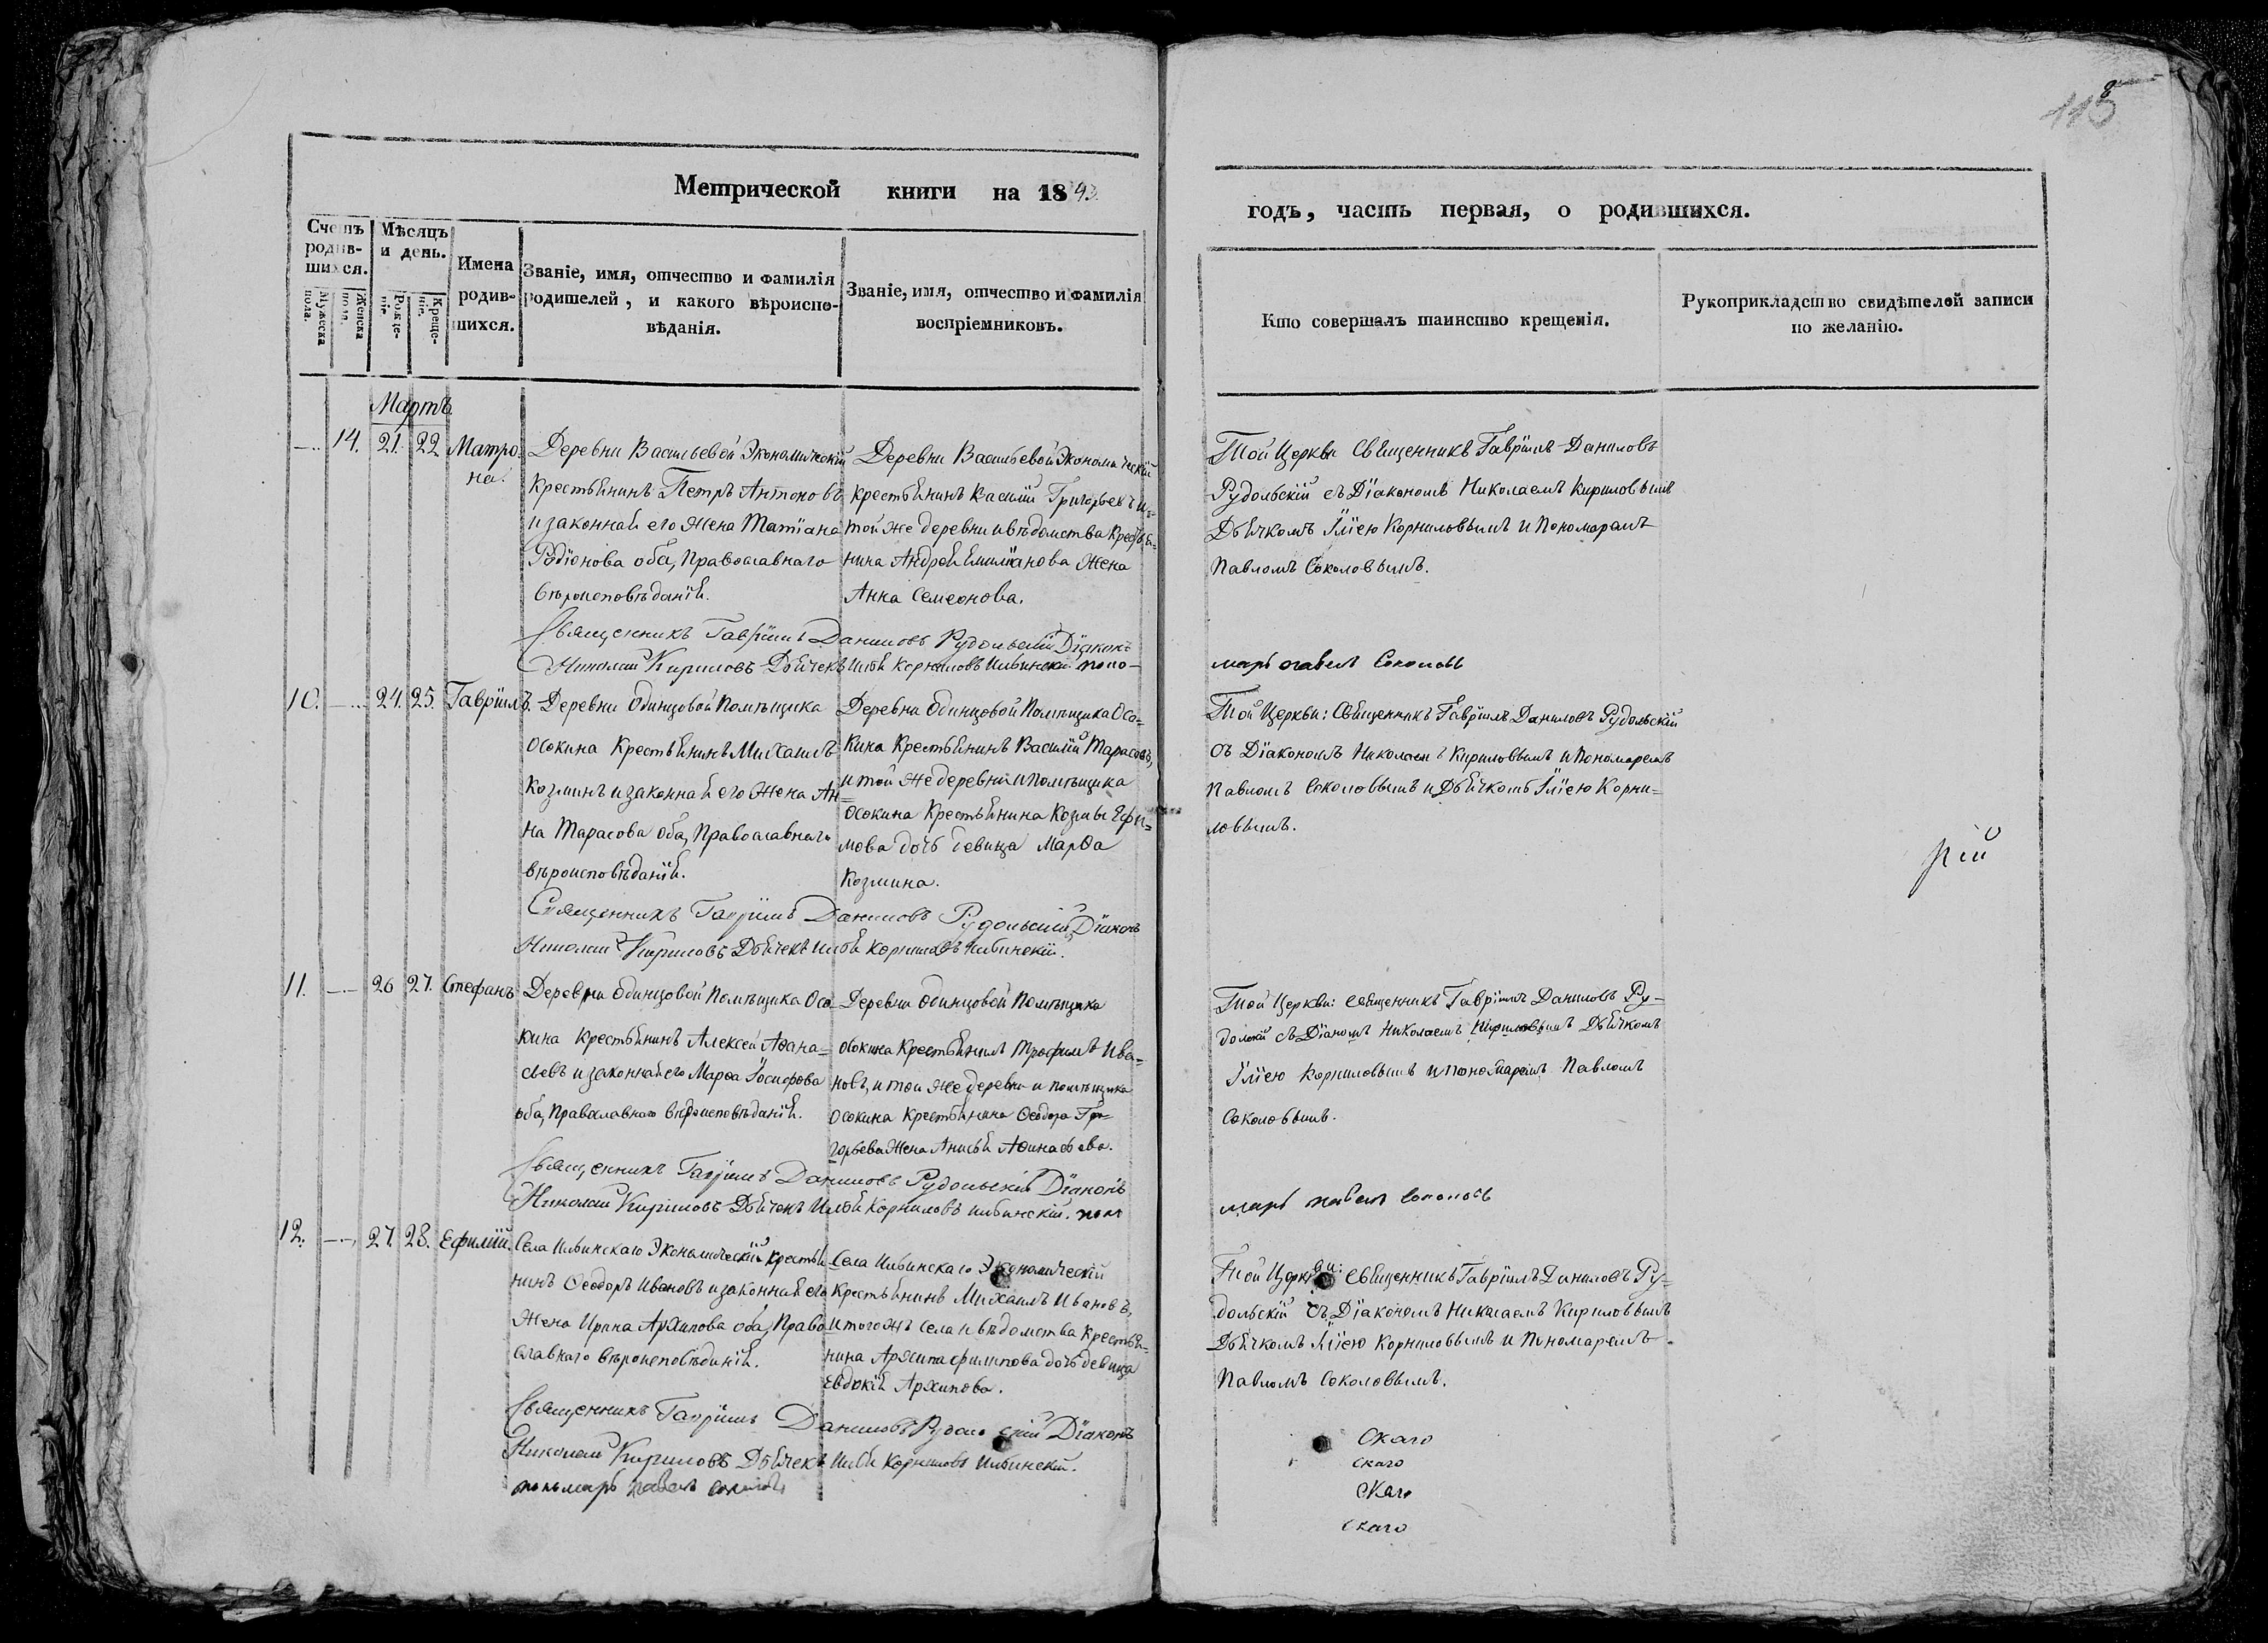 115
8
Метрической книги на 1843.
годъ, часть первая, о родившихся.
Счетъ родив-шихся.
Мужеска пола.
Женска пола.
Мѣсяцъ и день.
Рожде-нія.
Креще-нія.
Имена родив-шихся.
Званіе, имя, отчество и фамилія родителей, и какого вѣроиспо-вѣданія.
Званіе, имя, отчество и фамилія воспріемниковъ.
Кто совершалъ таинство крещенія.
Рукоприкладство свидѣтелей записи по желанію.
Мартъ
14. 21. 22 Матро-
на.
Деревни Васильевой Экономическій
крестьянинъ Петръ Антоновъ
и законная его жена Татіана
Родіонова оба, Православнаго
вѣроисповѣданія.
Деревни Васильевой Экономическій
крестьянинъ Василій Григорьевъ и
той же деревни и вѣдомства кресть-
нина Андрея Емиліанова жена
Анна Семеонова.
Той Церкви Священникъ Гавріилъ Даниловъ
Рудольскій съ Діакономъ Николаемъ Кириловымъ
Дьячкомъ Иліею Корниловымъ и Пономаремъ
Павломъ Соколовымъ.
Священникъ Гавріилъ Даниловъ Рудольскій Діаконъ
Николай Кириловъ Дьячекъ Илья Корниловъ Ильинскій поно-
марь павелъ Соколовъ
10. 24. 25. Гавріилъ.
Деревни Одинцовой Помѣщика
Осокина Крестьянинъ Михаилъ
Козминъ и законная его жена Ан-
на Тарасова оба, Православнаго
вѣроисповѣданія.
Деревни Одинцовой Помѣщика Осо-
кина Крестьянинъ Василій Тарасовъ,
и той же деревни и помѣщика
Осокина Крестьянина Козмы Ефи-
мова дочь девица Марѳа
Козмина.
Той Церкви: Священникъ Гавріилъ Даниловъ Рудольскій
съ Діакономъ Николаемъ Кириловымъ и Пономаремъ
Павломъ Соколовымъ и Дьячкомъ Иліею Корни-
ловымъ.
рій
Священникъ Гавріилъ Даниловъ Рудольскій Діаконъ
Николай Кириловъ Дьячекъ Илья Корниловъ Ильинскій.
11. 26 27. Стефанъ
Деревни Одинцовой Помѣщика Осо-
кина крестьянинъ Алексей Аѳана-
сіевъ и законная его Марѳа Іосифова
оба, Православнаго вѣроисповѣданія.
Деревни Одинцовой Помѣщика
Осокина Крестьянинъ Трофимъ Ива-
новъ, и той же деревни и помѣщика
Осокина крестьянина Ѳеодора Гри-
горьева жена Анисья Аѳанасьева.
Той Церкви: священникъ Гавріилъ Даниловъ Ру-
дольскій съ Діаномъ Николаемъ Кириловымъ Дьячкомъ
Иліею Корниловымъ и пономаремъ Павломъ
Соколовымъ.
Священникъ Гавріилъ Даниловъ Рудольскій Діаконъ
Николай Кириловъ Дьячекъ Илья Корниловъ Ильинскій. поно
марь павелъ Соколовъ
12. 27. 28. Ефимій.
Села Ильинскаго Экономическій крестья
нинъ Ѳеодоръ Ивановъ и законная его
жена Ирина Архипова оба, Право
славнаго вѣроисповѣданія.
Села Ильинскаго Экономическій
Крестьянинъ Михаилъ Ивановъ,
и того жъ села и вѣдомства крестья-
нина Архипа Филипова дочь девица
Евдокія Архипова.
Той Церкви: священникъ Гавріилъ Даниловъ Ру-
дольскій съ Діакономъ Николаемъ Кириловымъ
Дьячкомъ Иліею Корниловымъ и Пономаремъ
Павломъ Соколовымъ.
Священникъ Гавріилъ Даниловъ Рудольскій Діаконъ
Николай Кириловъ Дьячекъ Илья Корниловъ Ильинскій.
пономарь павелъ Соколовъ
скаго
скаго
скаго
скаго